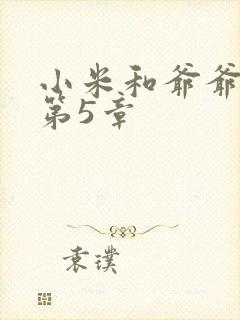 小米和爷爷
第5章
袁璞